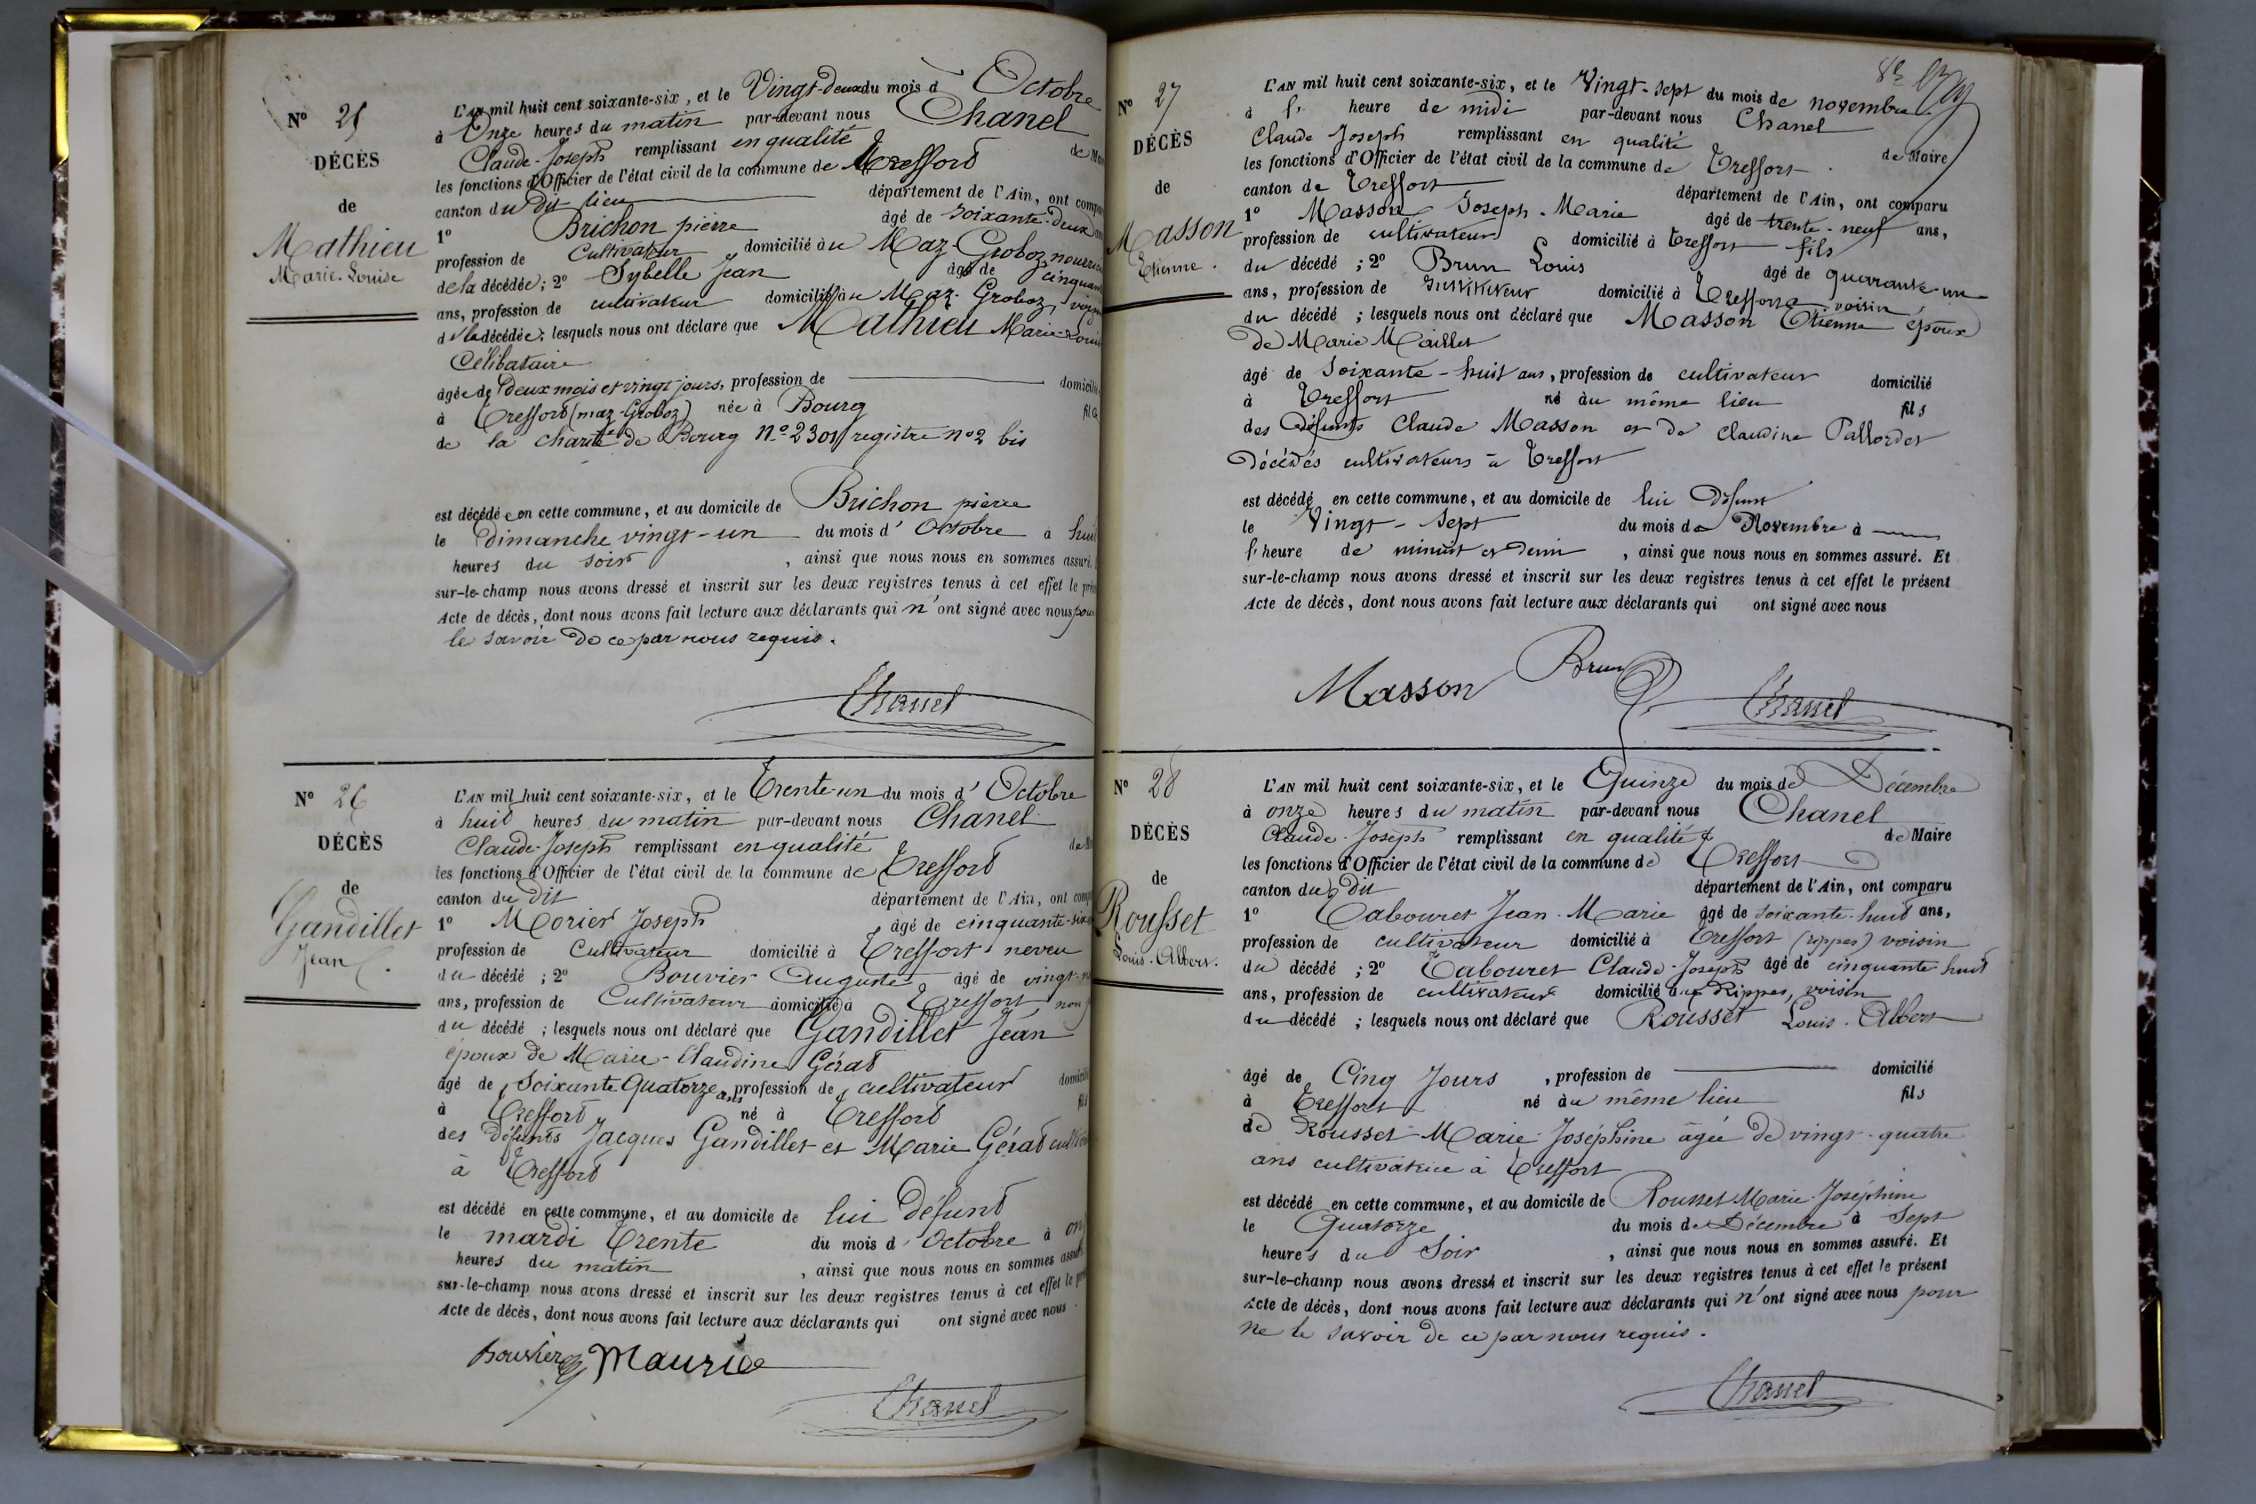 N° 25
DÉCÈS
de
Mathieu
Marie-Louise
L'AN mil huit cent soixante-six, et le Vingt-deux du mois d' Octobre
à Onze heures du matin par-devant nous Chanel
Claude-Joseph remplissant en qualité de
les fonctions d'Officier de l'état civil de la commune de Treffort
canton du dit lieu département de l'Ain, ont
1° Brichon pierre âgé de soixante-deux
profession de Cultivateur domicilié au Maz-Groboz,
de la décédée; 2° Sybelle Jean âgé de cinquante
ans, profession de cultivateur domicilié au Maz-Groboz,
de la décédée; lesquels nous ont déclaré que Mathieu Marie-Louise
Célibataire
âgée de deux mois et vingt jours, profession de
à Treffort (maz-Groboz) née à Bourg
de la charité de Bourg N° 2301 registre n° 2 bis
est décédée en cette commune, et au domicile de Brichon pierre
le dimanche vingt-un du mois d' Octobre à huit
heures du soir, ainsi que nous nous en sommes assuré.
sur-le-champ nous avons dressé et inscrit sur les deux registres tenus à cet effet le
Acte de décès, dont nous avons fait lecture aux déclarants qui n'ont signé avec nous pour
le savoir de ce par nous requis.
Chanel
N° 26
DÉCÈS
de
Gandillet
Jean
L'AN mil huit cent soixante-six, et le Trente-un du mois d' Octobre
à huit heures du matin par-devant nous Chanel
Claude-Joseph remplissant en qualité de
les fonctions d'Officier de l'état civil de la commune de Treffort
canton du dit département de l'Ain, ont
1° Morier Joseph âgé de cinquante-six
profession de Cultivateur domicilié à Treffort neveu
du décédé; 2° Bouvier Auguste âgé de vingt
ans, profession de Cultivateur domicilié à Treffort, non
du décédé; lesquels nous ont déclaré que Gandillet Jean
époux de Marie-Claudine Gérat
âgé de Soixante Quatorze ans, profession de cultivateur
à Treffort né à Treffort fils
des défunts Jacques Gandillet et Marie Gérat
à Treffort
est décédé en cette commune, et au domicile de lui défunt
le mardi Trente du mois d' Octobre à
heures du matin, ainsi que nous nous en sommes
sur-le-champ nous avons dressé et inscrit sur les deux registres tenus à cet effet le
Acte de décès, dont nous avons fait lecture aux déclarants qui ont signé avec nous.
Bouvier Maurice
Chanel
N° 27
DÉCÈS
de
Masson
Etienne.
L'AN mil huit cent soixante-six, et le Vingt-sept du mois de novembre
à heure de midi par-devant nous Chanel
Claude Joseph remplissant en qualité de Maire
les fonctions d'Officier de l'état civil de la commune de Treffort
canton de Treffort département de l'Ain, ont comparu
1° Masson Joseph-Marie âgé de trente-neuf ans,
profession de cultivateur domicilié à Treffort fils
du décédé; 2° Brun Louis âgé de quarante-un
ans, profession de instituteur domicilié à Treffort voisin
du décédé; lesquels nous ont déclaré que Masson Etienne époux
de Marie Maillet
âgé de soixante-huit ans, profession de cultivateur domicilié
à Treffort né au même lieu fils
des défunts Claude Masson et de Claudine Pallordet
décédés cultivateurs à Treffort
est décédé en cette commune, et au domicile de lui défunt
le Vingt-Sept du mois de Novembre à
heure de minuit et demi, ainsi que nous nous en sommes assuré. Et
sur-le-champ nous avons dressé et inscrit sur les deux registres tenus à cet effet le présent
Acte de décès, dont nous avons fait lecture aux déclarants qui ont signé avec nous
Masson Brun
Chanel
N° 28
DÉCÈS
de
Rousset
Louis-Albert.
L'AN mil huit cent soixante-six, et le Quinze du mois de Décembre
à onze heures du matin par-devant nous Chanel
Claude-Joseph remplissant en qualité de Maire
les fonctions d'Officier de l'état civil de la commune de Treffort
canton du dit département de l'Ain, ont comparu
1° Tabouret Jean-Marie âgé de soixante-huit ans,
profession de cultivateur domicilié à Treffort (rippes) voisin
du décédé; 2° Tabouret Claude-Joseph âgé de cinquante-huit
ans, profession de cultivateur domicilié aux Rippes, voisin
du décédé; lesquels nous ont déclaré que Rousset Louis-Albert
âgé de Cinq Jours, profession de domicilié
à Treffort né au même lieu fils
de Rousset-Marie-Joséphine âgée de vingt-quatre
ans cultivatrice à Treffort
est décédé en cette commune, et au domicile de Rousset Marie-Joséphine
le Quatorze du mois de Décembre à Sept
heures du Soir, ainsi que nous nous en sommes assuré. Et
sur-le-champ nous avons dressé et inscrit sur les deux registres tenus à cet effet le présent
Acte de décès, dont nous avons fait lecture aux déclarants qui n'ont signé avec nous pour
ne le savoir de ce par nous requis.
Chanel